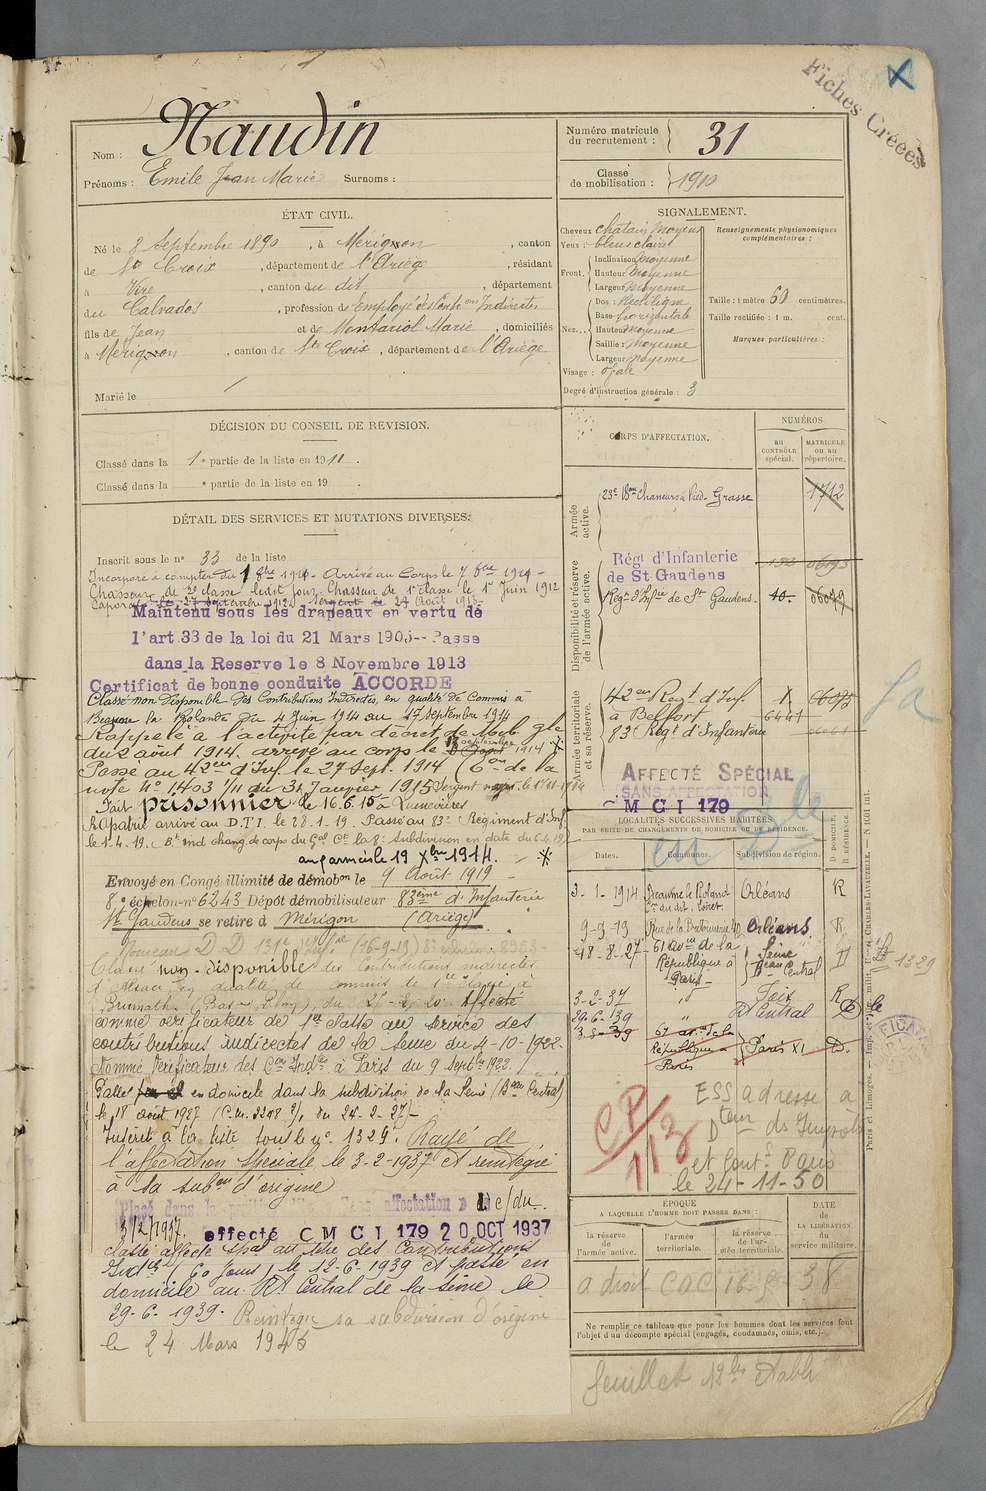 Fiches Créées
Nom : Naudin
Prénoms : Emile Jean Marie Surnoms :
Numéro matricule du recrutement : 31
Classe de mobilisation : 1910
ÉTAT CIVIL.
Né le 8 Septembre 1890, à Mérignon, canton
de Ste Croix, département de l'Ariège, résidant
à Vire, canton du dit, département
du Calvados, profession de Employé des Contons Indirectes
fils de Jean et de Montariol Marie, domiciliés
à Mérignon, canton de Ste Croix, département de l'Ariège
Marié le /
SIGNALEMENT.
Cheveux chatain moyens
Yeux : bleus clairs
Front. Inclinaison moyenne
Hauteur moyenne
Largeur moyenne
Nez. Dos : Rectiligne
Base horizontale
Hauteur moyenne
Saillie : moyenne
Largeur moyenne
Visage : ovale
Degré d'instruction générale : 3
Renseignements physionomiques complémentaires :
Taille : 1 mètre 60 centimètres.
Taille rectifiée : 1 m. cent.
Marques particulières :
DÉCISION DU CONSEIL DE REVISION.
Classé dans la 1e partie de la liste en 1911.
Classé dans la e partie de la liste en 19 .
DÉTAIL DES SERVICES ET MUTATIONS DIVERSES.
Inscrit sous le n° 33 de la liste
Incorporé à compter du 1 8bre 1911. Arrivé au Corps le 7 8bre 1911
Chasseur de 2e classe ledit jour. Chasseur de 1e classe le 1er Juin 1912
Caporal le 27 Septembre 1912. Sergent le 24 Août 1913
Maintenu sous les drapeaux en vertu de
l'art. 33 de la loi du 21 Mars 1905-- Passe
dans la Reserve le 8 Novembre 1913
Certificat de bonne conduite ACCORDE
Classé non disponible des Contributions Indirectes, en qualité de Commis à
Beaune la Rolande du 4 Juin 1914 au 17 Septembre 1914
Rappelé à l'activité par décret de Mob. gle
du 2 août 1914. arrivé au corps le 18 septembre 1914 ※
Passé au 42ème d'Inf. le 27 Sept. 1914 (Con de la
note N° 1403 1/11 du 31 Janvier 1915
Fait prisonnier le 16.6.15 à
Rapatrié arrivé au D.T.I. le 28.1.19. Passé au 83e Régiment d'Inf.
le 1.4.19.
aux armées le 19 Xbre 1914. ※
Envoyé en Congé illimité de démobon le 9 Août 1919
8e échelon n° 6243 Dépôt démobilisateur 83ème d'Infanterie
St Gaudens se retire à Mérigon (Ariège)
Classé non-disponible des Contributions indirectes
d'Alsace en qualité de Commis de 1re Classe à
Brumath (Bas-Rhin)
Affecté
comme vérificateur de 1re Classe au service des
contributions indirectes de la Seine du 4-10-1922.
Nommé Vérificateur des Cons Indtes à Paris du 9 septbre 1922.
en domicile dans la subdivision de la Seine (Beau Central)
le 18 août 1927
Inscrit à la liste sous le n° 1329. Rayé de
l'affectation spéciale le 3-2-1937 et réintégré
à sa subon d'origine
3/2/1937. affecté C M C I 179 20 OCT 1937
Classé affecté spal au titre des Contributions
Indtes (60 jours) le 12-6-1939 et passé en
domicile au Rt Central de la Seine le
29-6-1939. Réintégré sa subdivision d'origine
le 24 Mars 1945
CORPS D'AFFECTATION.
NUMÉROS
AU CONTRÔLE spécial.
MATRICULE ou au répertoire.
Armée active.
23e Bon Chasseurs à Pied. Grasse 1712
Disponibilité et réserve de l'armée active.
Régt d'Infanterie
de St Gaudens
Régt d'Infie de St Gaudens.
Armée territoriale et sa réserve.
42ème Régt d'Inf.
à Belfort
83e Régt d'Infanterie
AFFECTÉ SPÉCIAL
SANS AFFECTATION
M C I 179
LOCALITÉS SUCCESSIVES HABITÉES
PAR SUITE DE CHANGEMENTS DE DOMICILE OU DE RÉSIDENCE.
Dates. Communes. Subdivision de région. D DOMICILE. R RÉSIDENCE.
3-1-1914 Beaune la Roland Con du dit. Loiret Orléans R
9-9-19 Rue de la Bretonnerie 40 Orléans R
18-8-27 61 Avue de la République à Paris Seine Beau Central D
3-2-37 " Foix R
29-6-39 " Rt Central D
3-8-39 67 av. de la République à Paris Paris XI D.
1329
CP
113
ESS adresse à
Dteur ds Impôts
et Cont. Paris
le 24-11-50
EPOQUE
A LAQUELLE L'HOMME DOIT PASSER DANS :
la réserve de l'armée active.
l'armée territoriale.
la réserve de l'armée territoriale.
DATE DE LA LIBÉRATION du service militaire.
a droit CAC
Ne remplir ce tableau que pour les hommes dont les services font
l'objet d'un décompte spécial (engagés, condamnés, omis, etc.).
feuillet 12 bis établi
Paris et Limoges. — Imp. et Lib. milit. Henri CHARLES-LAVAUZELLE.